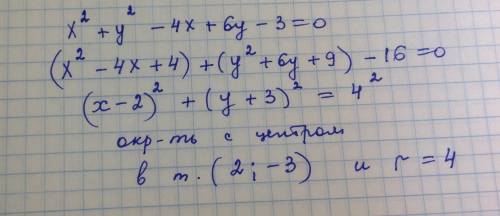 x² + y² - 4x + 6y - 3 = 0
(x² - 4x + 4) + (y² + 6y + 9) - 16 = 0
(x - 2)² + (y + 3)² = 4²
окр-ть с центром
в т. (2; -3) и r = 4